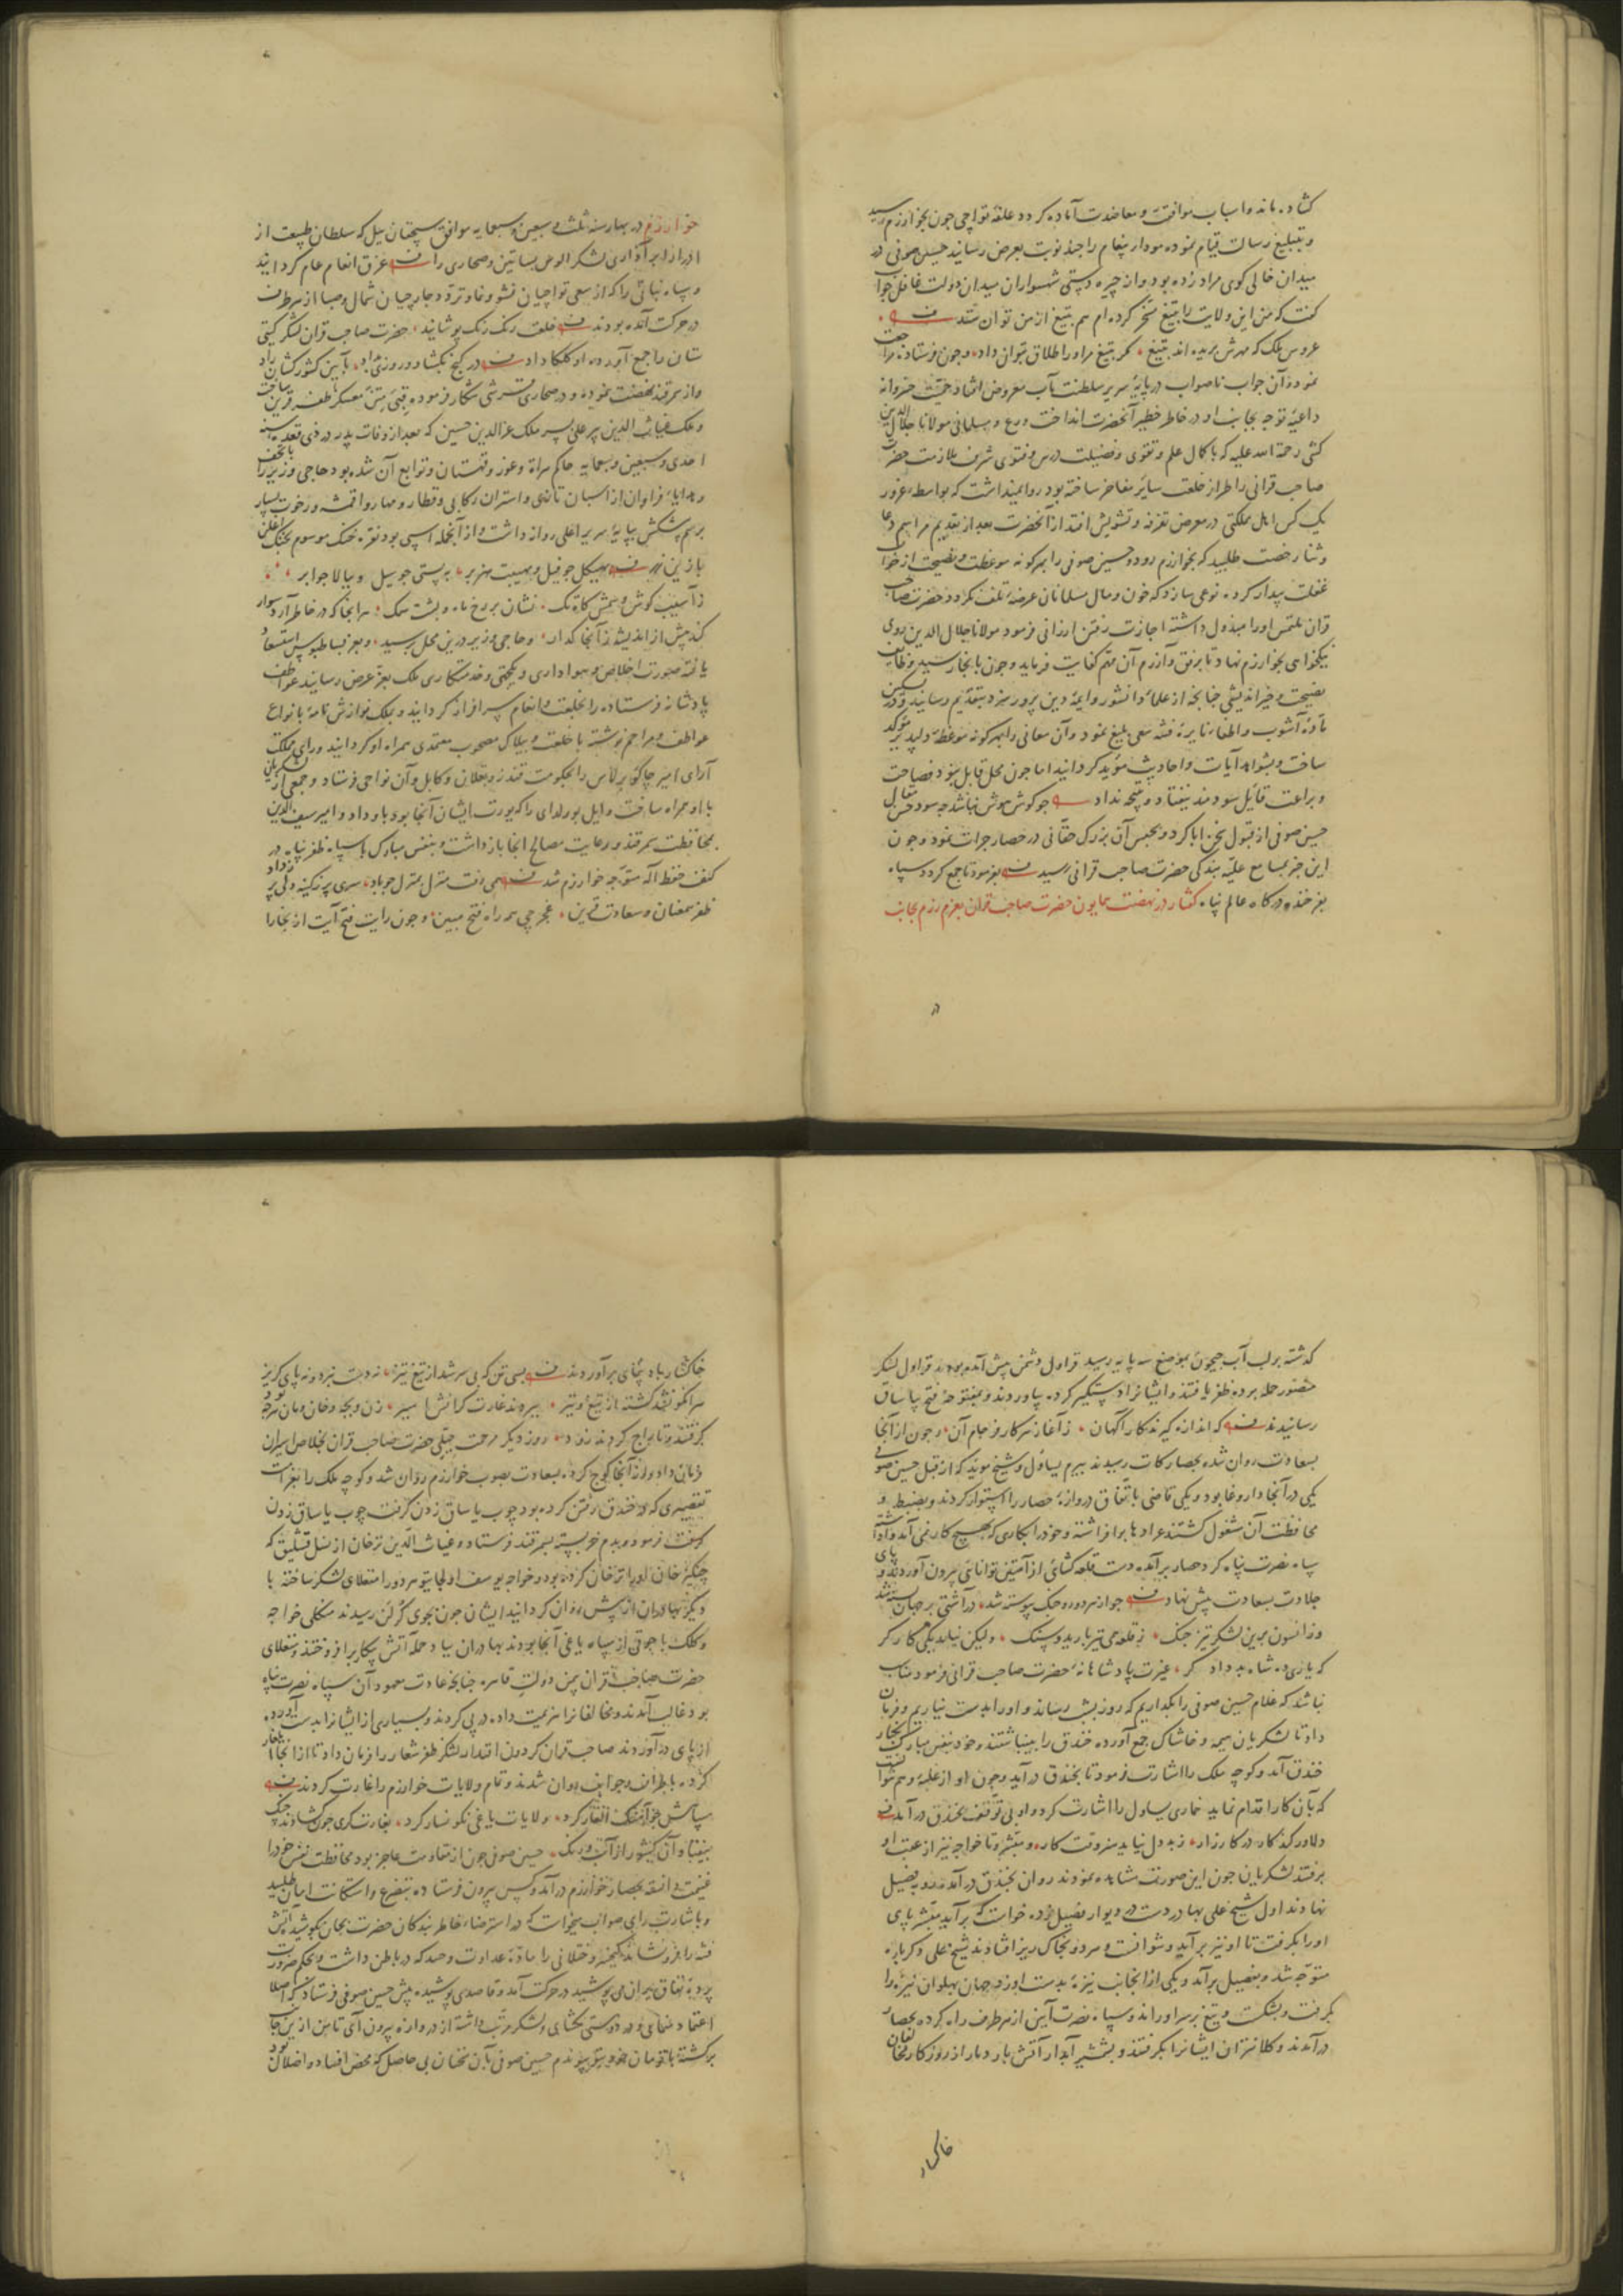 کشاده ماند و اسباب موافقت و معاضدت آماده کردد علقه تواجی جون بخوارزم رسید
و بتبلیغ رسالت قیام نموده مودای پیغام را جند نوبت بعرض رسانید حسین صوفی در
میدان خالی کوی مراد زده بود و از جیره دستی شهسواران میدان دولت غافل جواب
کفت که من این ولایت را بتیغ مسخر کرده ام هم بتیغ از من توان ستد
عروس ملک که مهرش بریده اند بتیغ کمر بتیغ مر او را طلاق بتوان داد و جون فرستاده مراجعت
نمود و آن جواب ناصواب در پایه سریر سلطنت مآب معروض افتاد حمیت خسروانه
داعیه توجه بجانب او در خاطر خطیر آنحضرت انداخت ورع و مسلمانی مولانا جلال الدین
کشی رحمة الله علیه که با کمال علم و تقوی و فضیلت درس و فتوی شرف ملازمت حضرت
صاحب قرانی را طراز خلعت سائر مفاخر ساخته بود روا نمیداشت که بواسطه غرور
یک کس اهل مملکتی در معرض تفرقه و تشویش افتد از آنحضرت بعد از تقدیم مراسم دعا
و ثنا رخصت طلبید که بخوارزم رود و حسین صوفی را بهرکونه موعظت و نصیحت از خواب
غفلت بیدار کرده نوعی سازد که خون و مال مسلمانان عرضه تلف نکردد حضرت صاحب
قران ملتمس او را مبذول داشته اجازت رفتن ارزانی فرمود مولانا جلال الدین روی
نیکخواهی بخوارزم نهاد تا برفق و آزرم آن مهم کفایت فرماید و جون بانجا رسید وظائف
نصیحت و خیر اندیشی جنانجه از علمای دانشور و ایمه دین پرور سزد بتقدیم رسانید و در تسکین
ماده آشوب و اطفاء نایره فتنه سعی بلیغ نمود و آن معانی را بهرکونه موعظه دلپذیر موکد
ساخت و بشواهد آیات و احادیث مؤید کردانید اما جون محل قابل نبود فصاحت
و براعت قائل سودمند نیفتاد و نتیجه نداد جو کوش هوش نباشد جه سود حسن مقال
حسین صوفی از قبول سخن ابا کرد و بحبس آن بزرک حقانی در حصار جرات نمود و جون
این خبر بمسامع علیه بندکی حضرت صاحب قرانی رسید بفرمود تا جمع کردد سپاه
بفرخنده درکاه عالم پناه کفتار در نهضت همایون حضرت صاحب قران بعزم رزم بجانب
خوارزم در بهار سنه ثلث و سبعین و سبعمایه موافق سیجقان ییل که سلطان طبیعت از
ادرار ابر آذاری لشکر الوس بساتین و صحاری را غرق انعام عام کردانید
و سپاه نباتی را که از سعی تواجیان نشو و نما و تردد جارجیان شمال و صبا از هر طرف
در حرکت آمده بودند خلعت رنک رنک پوشانید حضرت صاحب قران لشکر کیتی
ستان را جمع آورده او کلکا داد در کنج بکشاد و روزی بداد بآیین کشور کشایان راد
و از سمرقند نهضت نموده و در صحاری قرشی شکار فرموده قبتی متن معسکر ظفر قرین ساخت
و ملک غیاث الدین پیر علی پسر ملک عزالدین حسین که بعد از وفات پدر در ذی قعده سنه
احدی و سبعین و سبعمایه حاکم هراة و غور و قهستان و توابع آن شده بود حاجی وزیر را با تحف
و هدایاء فراوان از اسپان تازی و استران رکابی و قطار و مهار و اقمشه و رخوت بسیار
برسم پیشکش بپایه سریر اعلی روانه داشت و از آنجمله اسپی بود نقره خنک موسوم بخنک اغلن
با زین زر بهیکل جو فیل و بهیبت هزبر به پستی جو سیل و ببالا جو ابر
ز آسیب کوش و سمش کاه تک نشان بر رخ ماه و پشت سمک هر انجا که در خاطر آرد سوار
کند پیش از اندیشه زآنجا کذار و حاجی وزیر درین محل برسید و بعز بساط بوس استسعاد
یافته صورت اخلاص و هواداری و یکجهتی و خدمتکاری ملک بعز عرض رسانید عواطف
پادشانه فرستاده را بخلعت و انعام سرافراز کردانید و بملک نوازش نامه بانواع
عواطف و مراحم نوشته با خلعت و بیلاک مصحوب معتمدی همراه او کردانید و رای مملکت
آرای امیر جاکو برلاس را بحکومت قندز و بقلان و کابل و آن نواحی فرستاد و جمعی از لشکریان
با او همراه ساخت و ایل بورلدای را که یورت ایشان آنجا بود باو داد و امیر سیف الدین
بمحافظت سمرقند و رعایت مصالح انجا بازداشت و بنفس مبارک با سپاه ظفر پناه در
کنف حفظ اله متوجه خوارزم شد همی رفت منزل بمنزل جو باد سری پر ز کینه دلی پر ز داد
ظفر همعنان و سعادت قرین غجرجی همراه فتح مبین و جون رایت فتح آیت از بخارا
کذشته بر لب آب جیحون بموضع سه پایه رسید قراول دشمن پیش آمده بودند قراول لشکر
منصور حمله برده ظفر یافتند و ایشانرا دستکیر کرده بیاوردند و بمفتوحه فتح بیاساق
رسانیدند که اندازه کیرند کار آکهان ز آغاز هر کار فرجام آن و جون از آنجا
بسعادت روان شده بحصار کات رسیدند بیرم یساول و شیخ موید که از قبل حسین صوفی
یکی در آنجا داروغا بود و یکی قاضی باتفاق دروازه حصار را استوار کردند و بضبط و
محافظت آن مشغول کشتند عرادها برافراشته و خود را بکاری که بهیج کار نمی آمد واداشته
سپاه نصرت پناه کرد حصار برآمده دست قلعه کشائی از آستین توانائی بیرون آوردند و پای
جلادت بسعادت پیش نهاد جو از هر دو رده جنک پیوسته شد در آشتی بر جهان بسته شد
وز انسون برین لشکر تیز جنک ز قلعه همی تیر بارید و سنک ولیکن نیاید یکی کارکر
که یاری ده شاه بد دادکر غیرت پادشاهانه حضرت صاحب قرانی فرمود مناسب
نباشد که غلام حسین صوفی را بکذاریم که روز بشب رساند و او را بدست نیاریم و فرمان
داد تا لشکریان هیمه و خاشاک جمع آورده خندق را بینباشتند و خود بنفس مبارک بکنار
خندق آمد و کوجه ملک را اشارت فرمود تا بخندق درآید و جون او از غلبه وهم نتوانست
که بآن کار اقدام نماید خماری یساول را اشارت کرد و او بی توقف بخندق درآمد
دلاور کند کار در کارزار ز بددل نیاید بوقت کار و مبشر و تاخواجه نیز از عقب او
برفتند لشکریان جون این صورت مشاهده نمودند روان بخندق درآمده رو بفصیل
نهادند اول شیخ علی بهادر دست در دیوار فصیل زده خواست که برآید مبشر پای
او را بکرفت تا او نیز برآید و نتوانست و هر دو بخاک ریز افتادند شیخ علی دکرباره
متوجه شد و بفصیل برآمد و یکی از انجانب نیزه بدست او زد جهان پهلوان نیزه را
بکرفت و بشکست و تیغ بر سر او راند و سپاه نصرت آیین از هر طرف راه کرده بحصار
درآمدند و کلانتران ایشانرا بکرفتند و بشمشیر آبدار آتش بار دمار از روزکار مخالفان
خاکسار
خاکسار باد پیمای برآوردند بسی تن که بی سر شد از تیغ تیز نه دست نبرد و نه پای کریز
روز دیکر مرحمت جبلی حضرت صاحب قران بخلاص اسیران
فرمان داد و از آنجا کوج کرده بسعادت بصوب خوارزم روان شد و کوجه ملک را بغرامت
تقصیری که در خندق رفتن کرده بود جوب یاساق زدن کرفت جوب یاساق زدن
کرفت فرمود و بدم خر بسته بسمرقند فرستاد و غیاث الدین ترخان از نسل قشلیق که
جنکیز خان او را ترخان کرده بود و خواجه یوسف اولجایتو هر دو را منغلای لشکر ساخته با
دیکر بهادران از پیش روان کردانید ایشان جون بجوی کرلن رسیدند منکلی خواجه
و کلک با جوقی از سپاه یاغی آنجا بودند بهادران بیاد حمله آتش پیکار برافروختند و منغلای
حضرت صاحب قران بیمن دولت قاهره جنانجه عادت معهود آن سپاه نصرت پناه
بود غالب آمدند و مخالفانرا هزیمت داده در پی کردند و بسیاری از ایشانرا بدست آورده
از پای درآوردند صاحب قران کردون اقتدار لشکر ظفر شعار را فرمان داد تا از انجا ایلغار
کرده باطراف و جوانب روان شدند و تمام ولایات خوارزم را غارت کردند
ولایات یاغی نکونسار کرد بغارت کری جون کشادند جنک
بیفتاد آن کشور از آب و رنک حسین صوفی جون از مقاومت عاجز بود محافظت نفس خود را
غنیمت دانسته بحصار خوارزم درآمد و کس بیرون فرستاده بتضرع و استکانت امان طلبید
و باشارت رای صواب میخواست که در استرضاء خاطر بندکان حضرت بجان بکوشید آتش
فتنه را فرونشاند کیخسرو ختلانی را ماده عداوت و حسد که در باطن داشت و بحکم ضرورت
پرده نفاق بر ان می پوشید در حرکت آمد و قاصدی پوشیده پیش حسین صوفی فرستاد که اصلا
اعتماد منمای و در دوستی مکشای و لشکر مرتب داشته از دروازه بیرون آی تا من ازین جانب
برکشته با تومان خود بتو پیوندم حسین صوفی بآن سخنان بی حاصل که محض افساد و اضلال بود